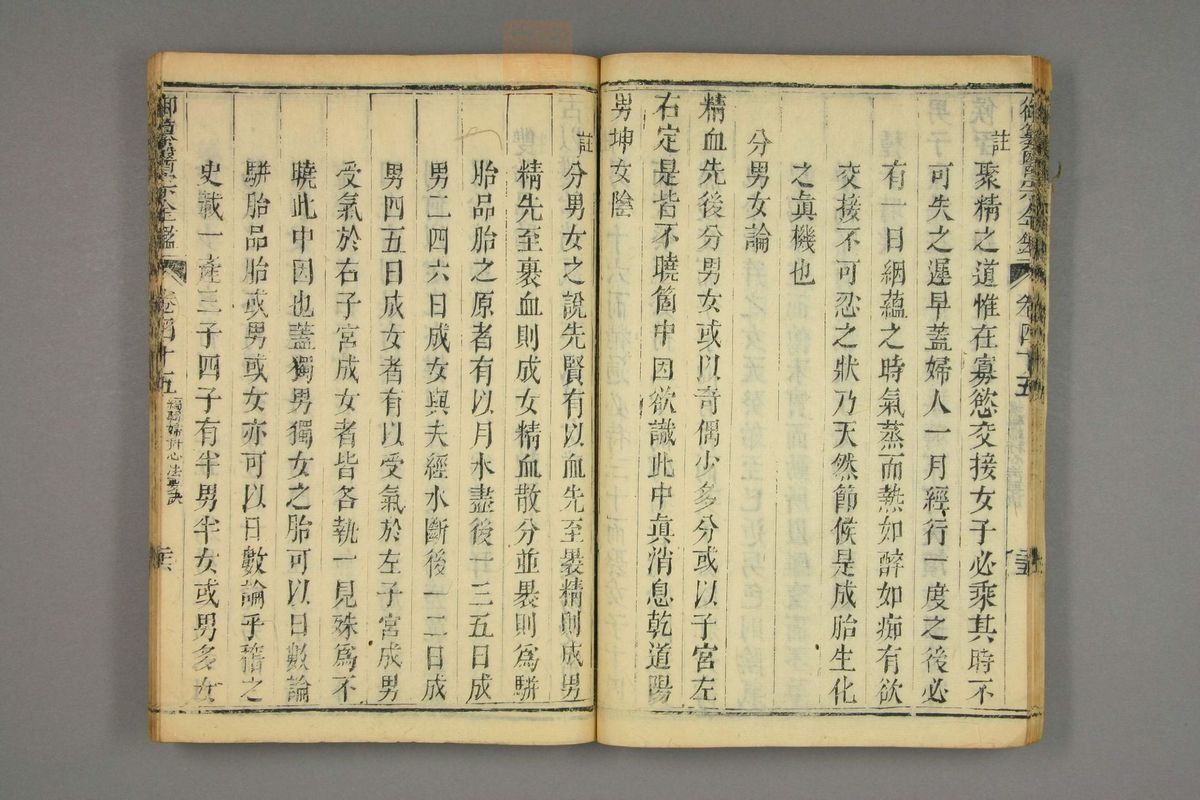 御纂醫宗金鑑 卷四十五
註 聚精之道惟在寡慾交接女子必乘其時不
可失之遲早蓋婦人一月經行一度之後必
有一日絪蘊之時氣蒸而熱如醉如痴有欲
交接不可忍之狀乃天然節候是成胎生化
之眞機也
分男女論
精血先後分男女或以奇偶少多分或以子宮左
右定是皆不曉箇中因欲識此中眞消息乾道陽
男坤女陰
註 分男女之說先賢有以血先至裹精則成男
精先至裹血則成女精血散分並裹則爲駢
胎品胎之原者有以月水盡後一三五日成
男二四六日成女與夫經水斷後一二日成
男四五日成女者有以受氣於左子宮成男
受氣於右子宮成女者皆各執一見殊爲不
曉此中因也蓋獨男獨女之胎可以日數論
駢胎品胎或男或女亦可以日數論乎稽之
史載一產三子四子有半男半女或男多女
御纂醫宗金鑑 卷四十五 編輯婦科心法要訣